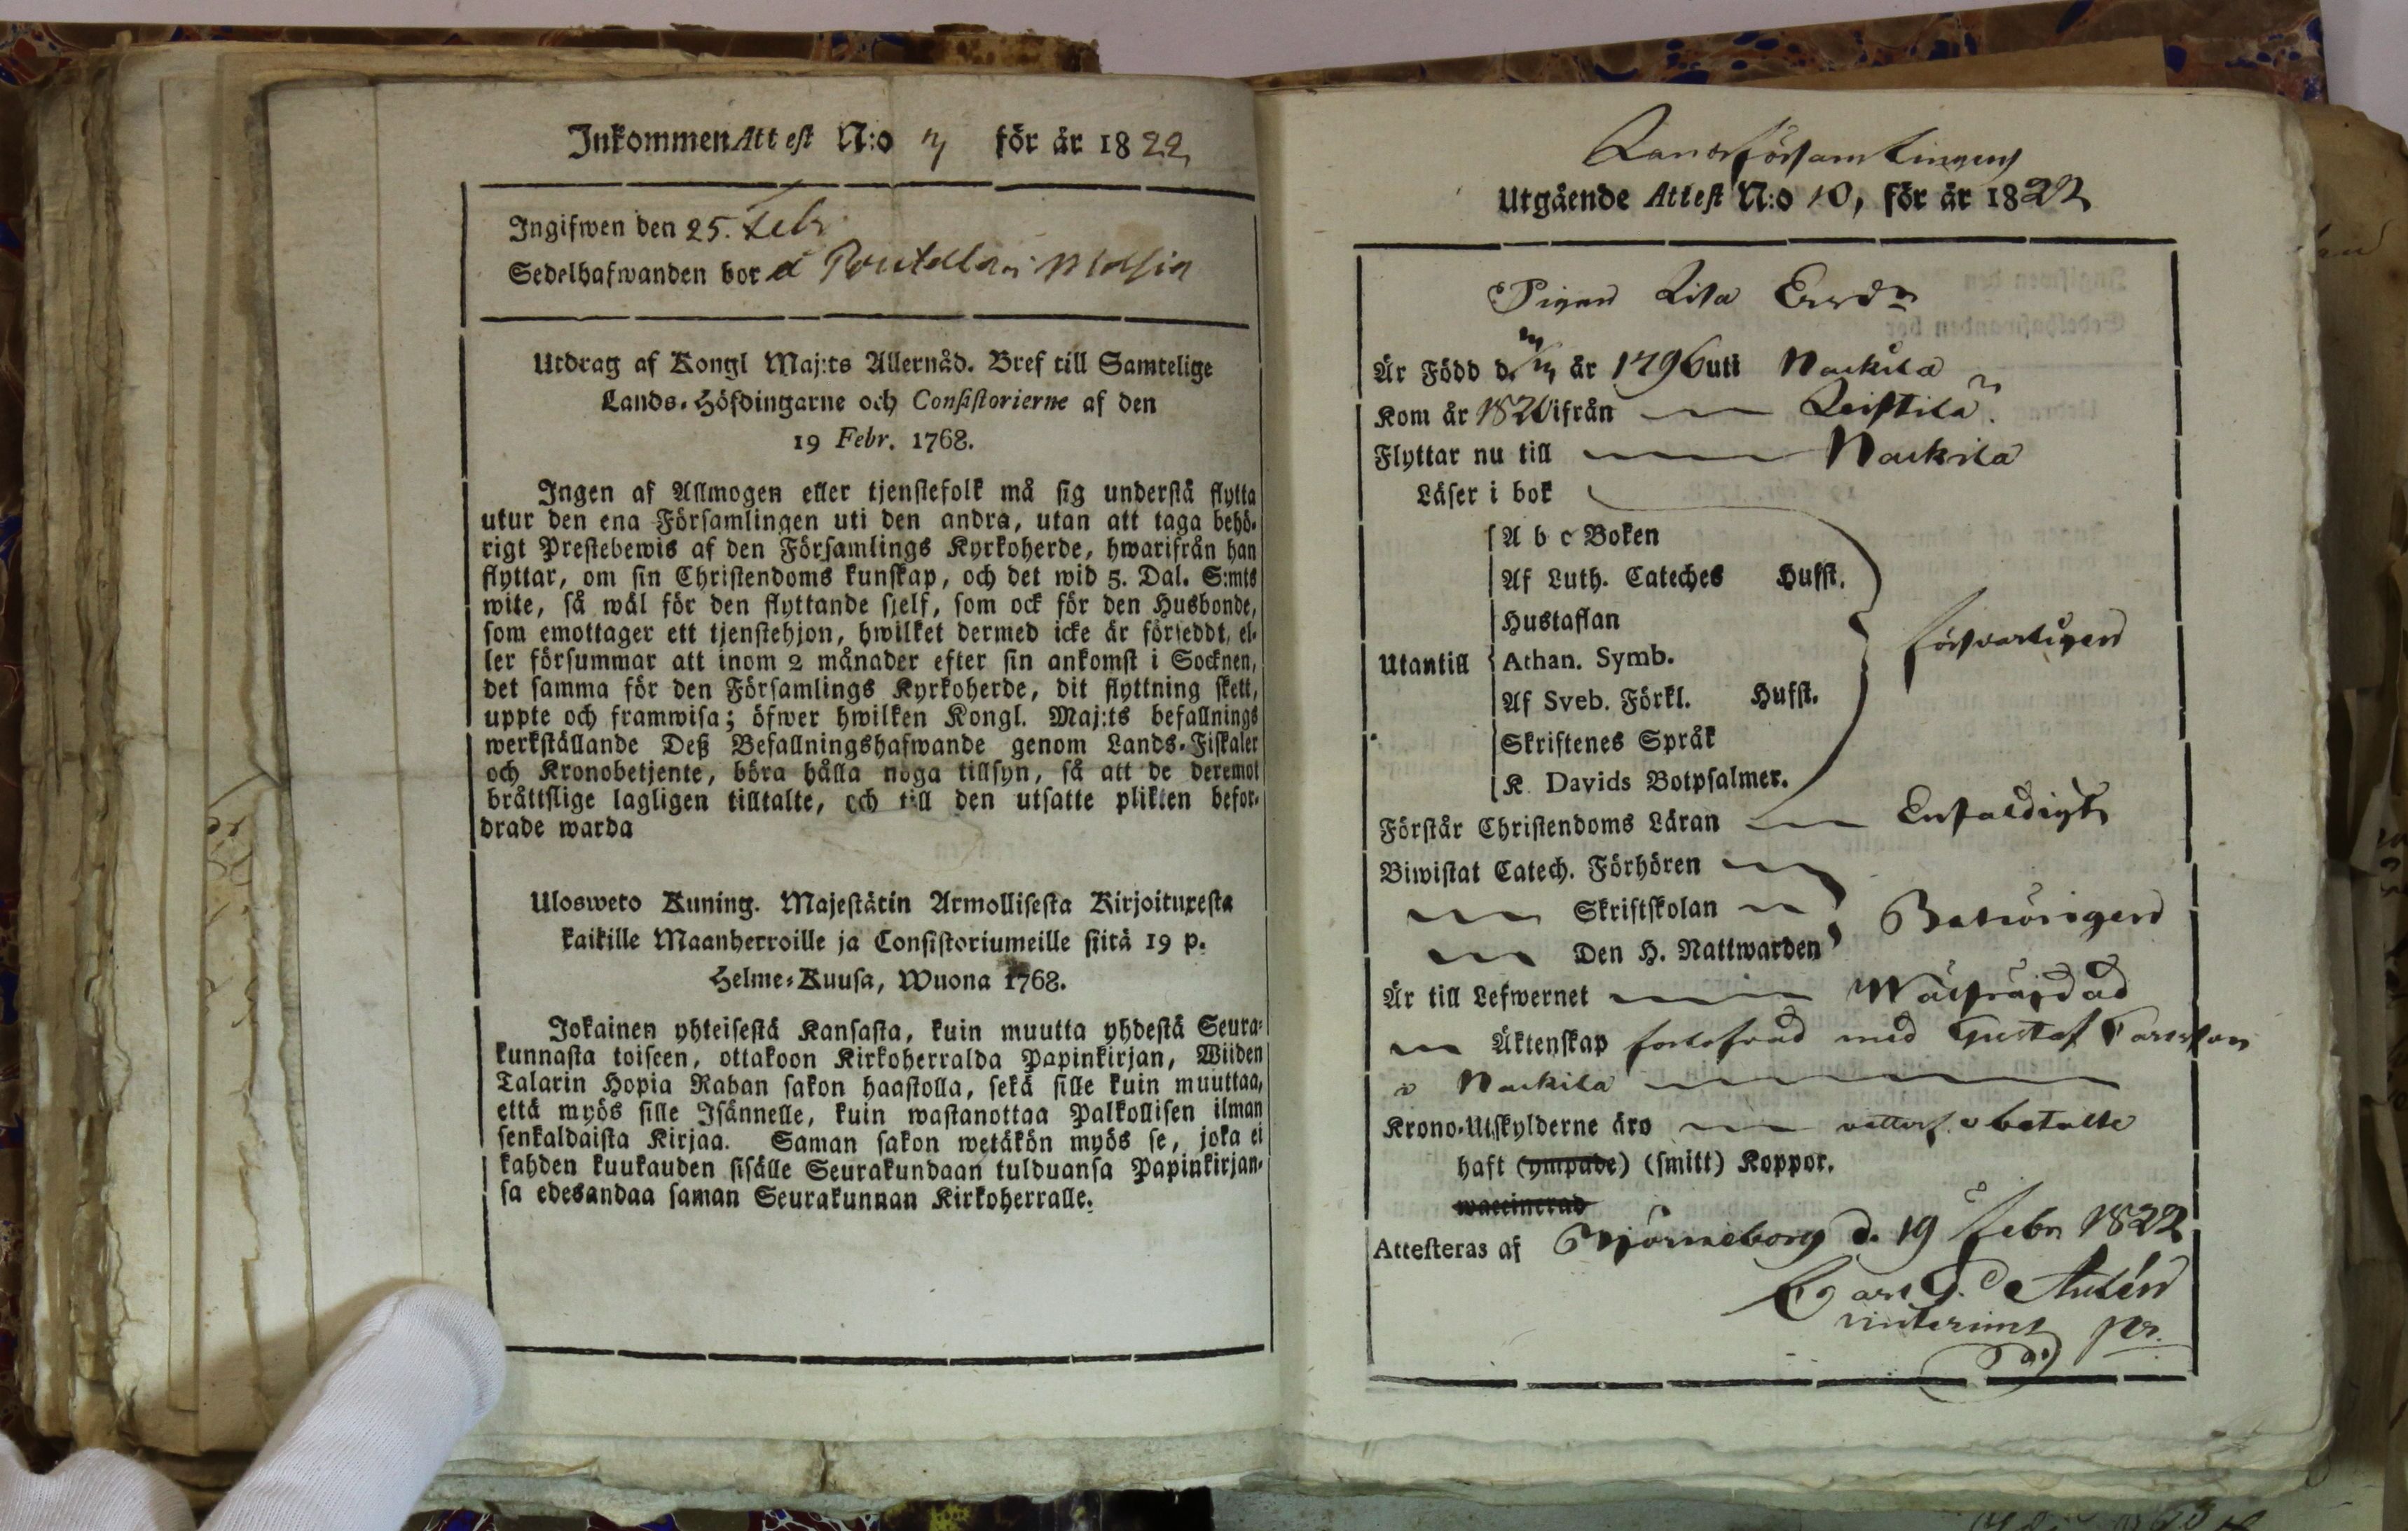 Inkommen Attest N:o 7 för år 1822
Ingifwen den 25. Febr
Sedelhafwanden bor å Masia
Utdrag af Kongl Maj:ts Allernåd. Bref till Samtelige
Lands-Höfdingarne och Consistorierne af den
19 Febr. 1768.
Ingen af Allmogen eller tjenstefolk må sig understå flytta
utur den ena Församlingen uti den andra, utan att taga behö-
rigt Prestebewis af den Församlings Kyrkoherde, hwarifrån han
flyttar, om sin Christendoms kunskap, och det wid 5. Dal. S:mts
wite, så wäl för den flyttande sjelf, som ock för den Husbonde,
som emottager ett tjenstehjon, hwilket dermed icke är förseddt, el-
ler försummar att inom 2 månader efter sin ankomst i Socknen,
det samma för den Församlings Kyrkoherde, dit flyttning skett,
uppte och framwisa; öfwer hwilken Kongl. Maj:ts befallnings
werkställande Deß Befallningshafwande genom Lands-Fiskaler
och Kronobetjente, böra hålla noga tillsyn, så att de deremot
bråttslige lagligen tilltalte, och till den utsatte plikten befor-
drade warda
Ulosweto Kuning. Majestätin Armollisesta Kirjoituxesta
kaikille Maanherroille ja Consistoriumeille siitä 19 p.
Helme-Kuusa, Wuona 1768.
Jokainen yhteisestä Kansasta, kuin muutta yhdestä Seura-
kunnasta toiseen, ottakoon Kirkoherralda Papinkirjan, Wiiden
Talarin Hopia Rahan sakon haastolla, sekä sille kuin muuttaa,
että myös sille Isännelle, kuin wastanottaa Palkollisen ilman
senkaldaista Kirjaa. Saman sakon wetäkön myös se, joka ei
kahden kuukauden sisälle Seurakundaan tulduansa Papinkirjan-
sa edesandaa saman Seurakunnan Kirkoherralle.
Landsförsamlingens
Utgående Attest N:o 10, för år 1822
Pigan Lisa Ersdr
Är Född d. år 1796 uti Nackila
Kom år 1820 ifrån Leistilä
Flyttar nu till Nackila
Läser i bok
Utantill
A b c Boken
Af Luth. Cateches Hufst.
Hustaflan
Athan. Symb.
Af Sveb. Förkl. Hufst.
Skriftenes Språk
K. Davids Botpsalmer.
försvarligen
Förstår Christendoms Läran Enfaldigt
Biwistat Catech. Förhören
Skriftskolan
Den H. Nattwarden
Behörigen
Är till Lefwernet Wälfräjdad
Äktenskap förlofvad med Gustaf
i Nackila
Krono-Utskylderne äro betalte
haft (ympade) (smitt) Koppor.
waccinerad
Attesteras af Björneborg d. 19 Febr 1822
Carl G.